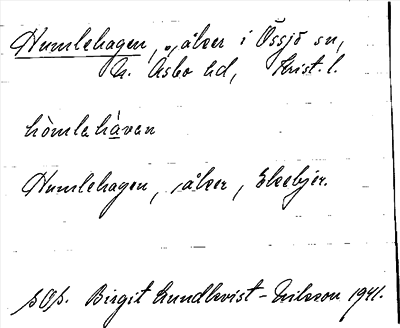 Humlehagen, åker i Össjö sn,
N. Åsbo hd, Krist. l.
hòmlahàvan
Humlehagen, åker, Ekebjer.
Birgit Lundkvist-Eriksson 1941.